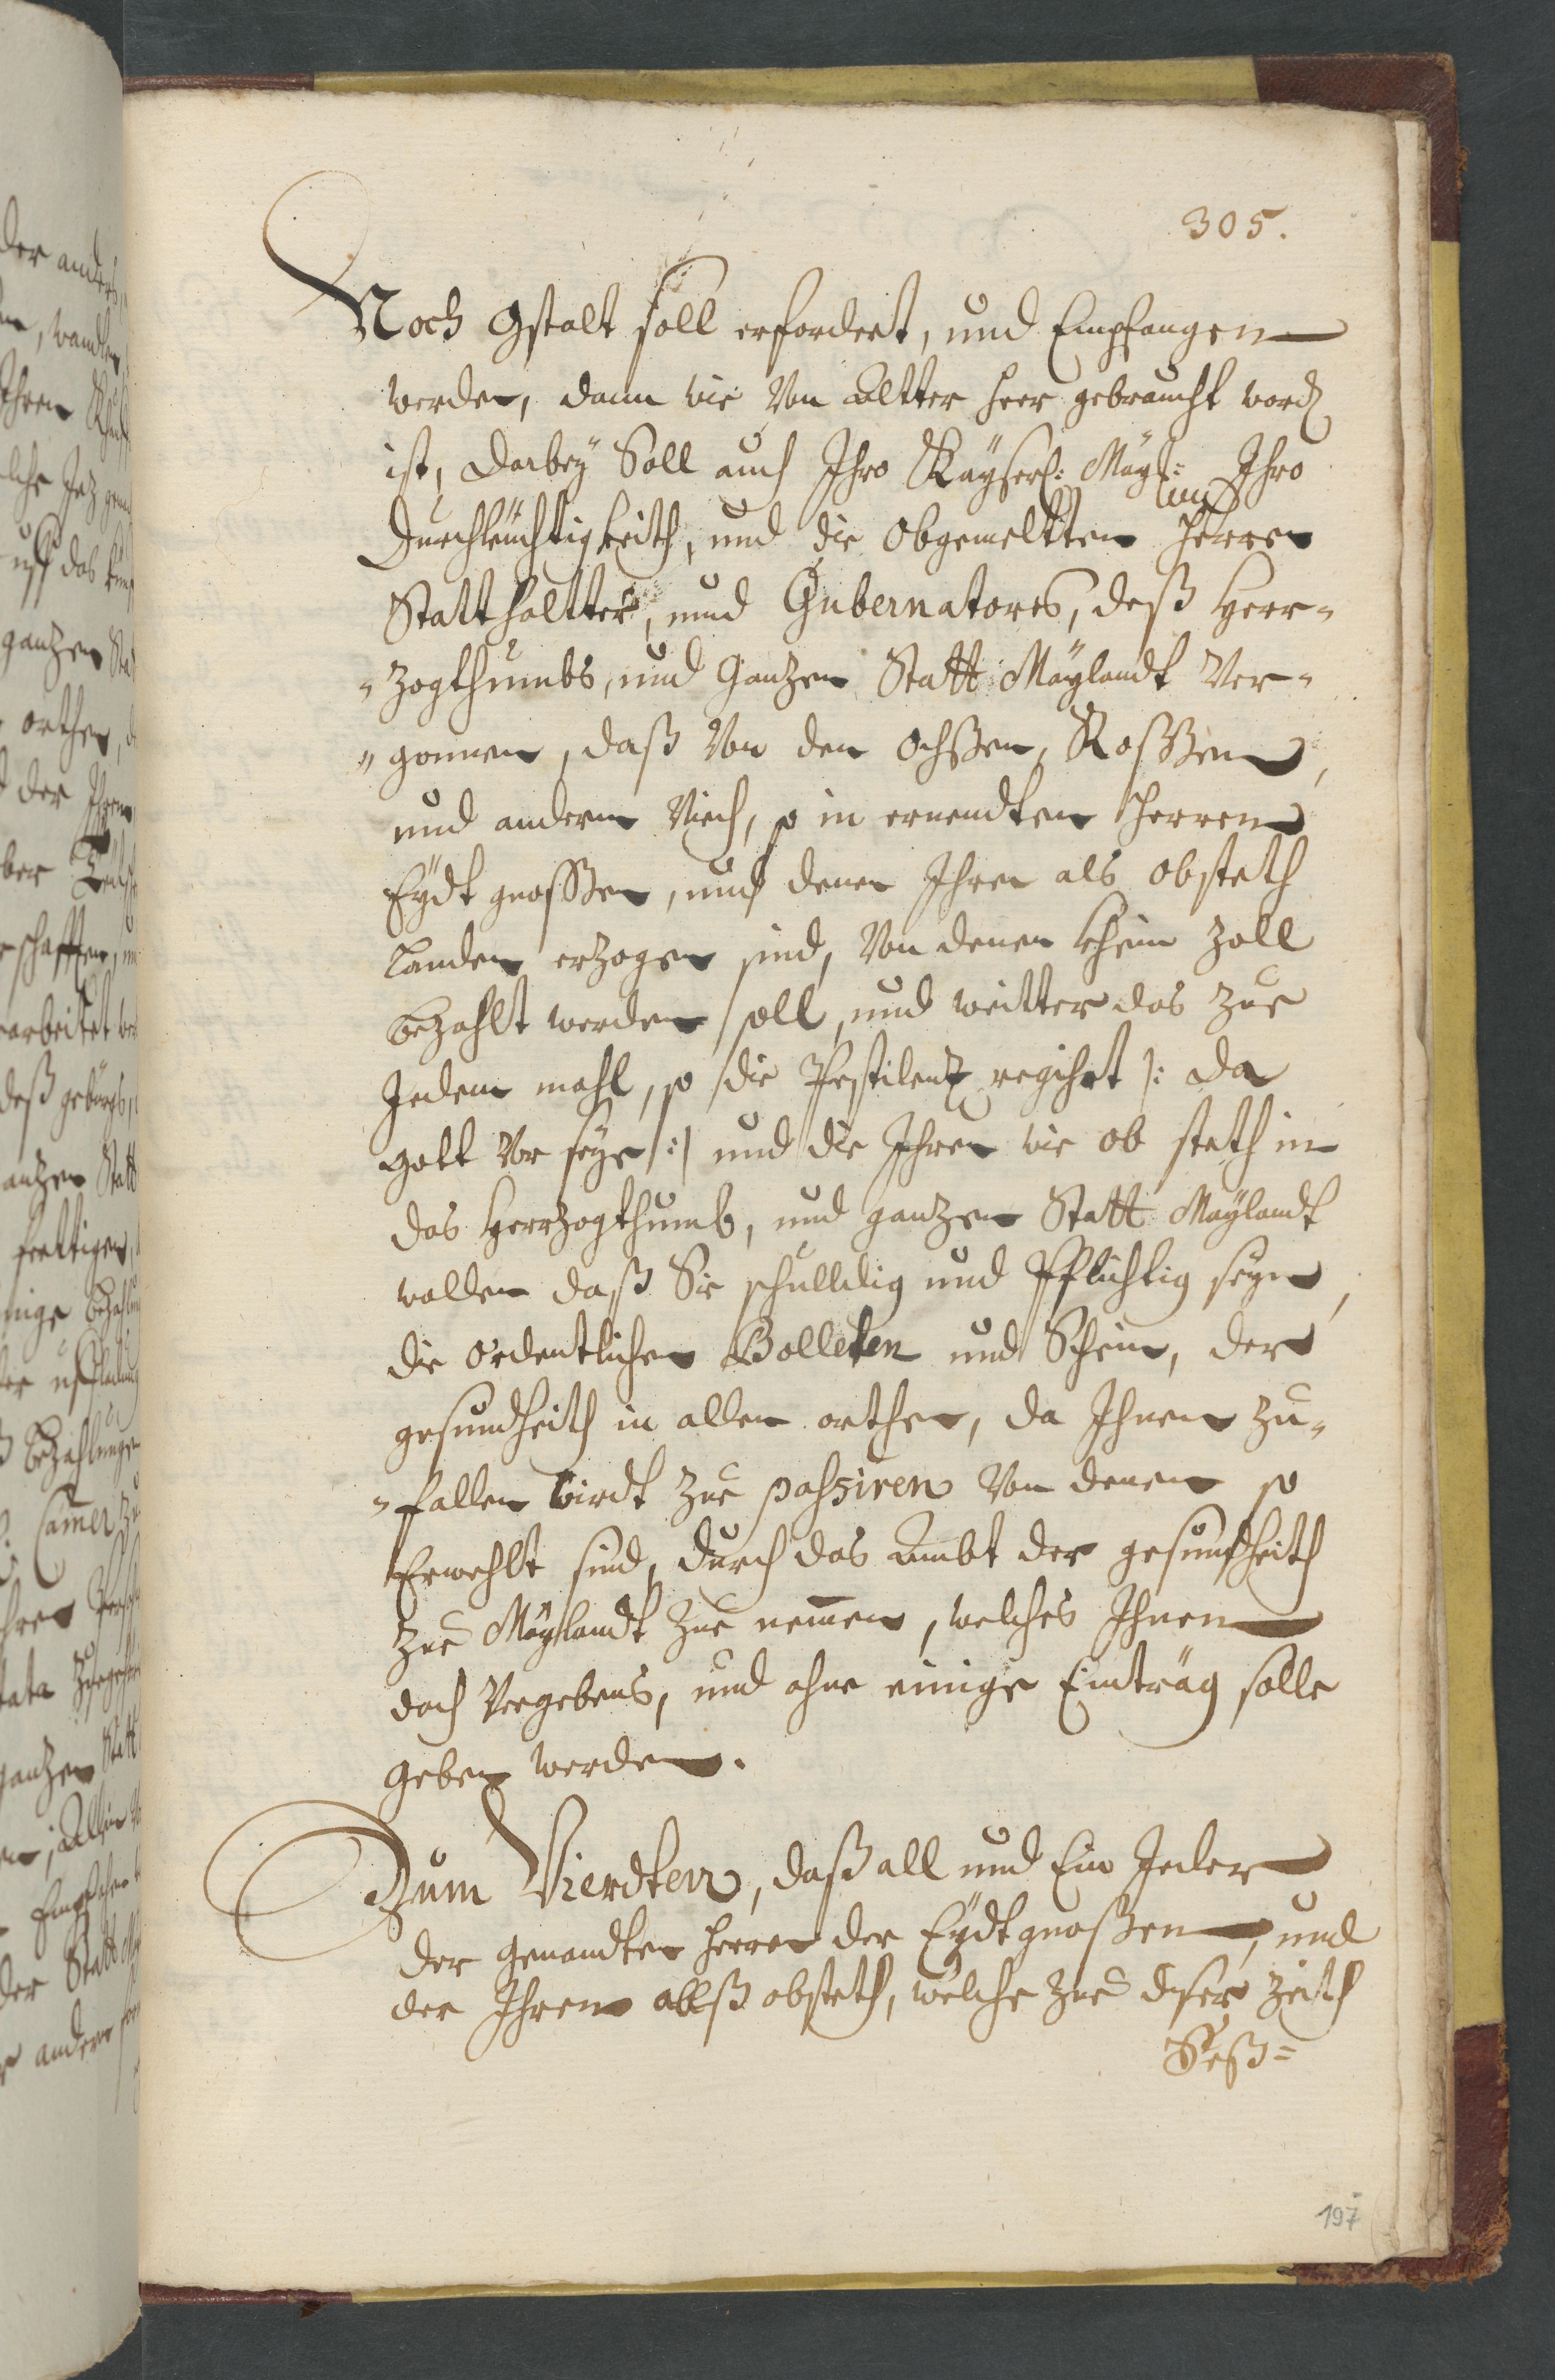 305.
Noch Gstalt soll erfordert, und Empfangen
werden, dann wie Von Altter heer gebraucht word
ist, Darbeÿ Soll auch Ihro Kaÿserl: Maÿt: Ihro
Durchleüchtigkeith, und die Obgemeltten Herren
Statthaltter, und Gubernatores, deß Herr-
-zogthumbs, und Gantzen Statt Maÿlandt Ver-
-gonnen, daß Von den Ochßen, Roßßen,
und anderm Viech, so in ernendten Herren
Eÿdtgnoßßen, und denen Ihren als obsteth
Landen erzogen sind, Von denen khein Zoll
bezahlt werden soll, und weitter das zue
Jedem mahl, so die Pestilentz regihrt /: da
gott Vor seÿe :/ und die Ihren wie ob steth in
das Herrzogthumb, und gantzen Statt Maÿlandt
wollen daß Sie schulldig und Pflichtig seÿen,
die ordentlichen Bolleten und Schein, der
gesundheith in allen orthen, da Ihnen zu-
-fallen wirdt zue passiren Von denen so
Erwehlt sind, durch das Ambt der gesundheith
zue Maÿlandt zue nemmen, welches Ihnen
doch Vergebens, und ohne einige Einträg solle
geben werden.
Zum Vierdten, daß all und Ein Jeder
der genandten Herren der Eÿdtgnoßen, und
der Ihren allß obsteth, welche zue diser Zeith
Seß=
197